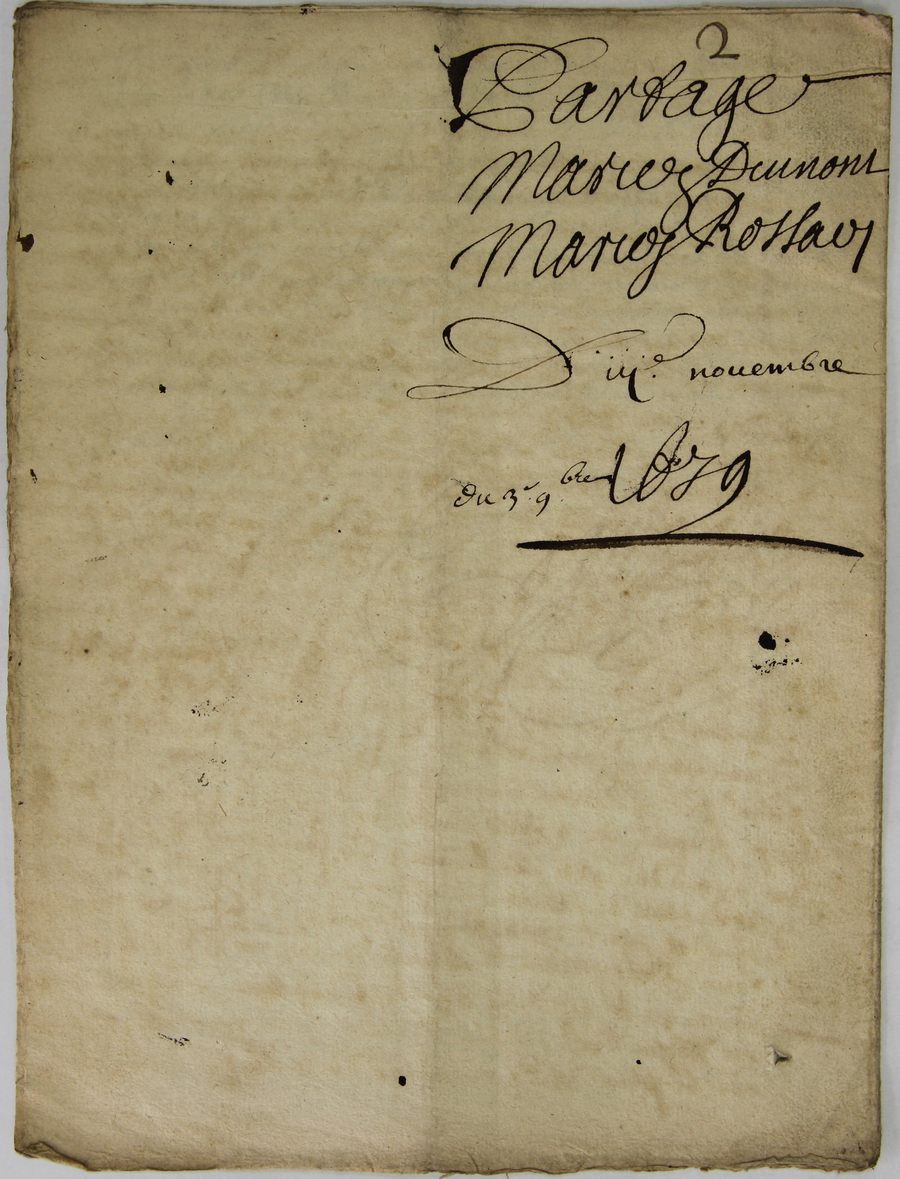 2
Partage
Marie Dumont
Marie Rossay
D iije novembre
du 3e 9bre 1659